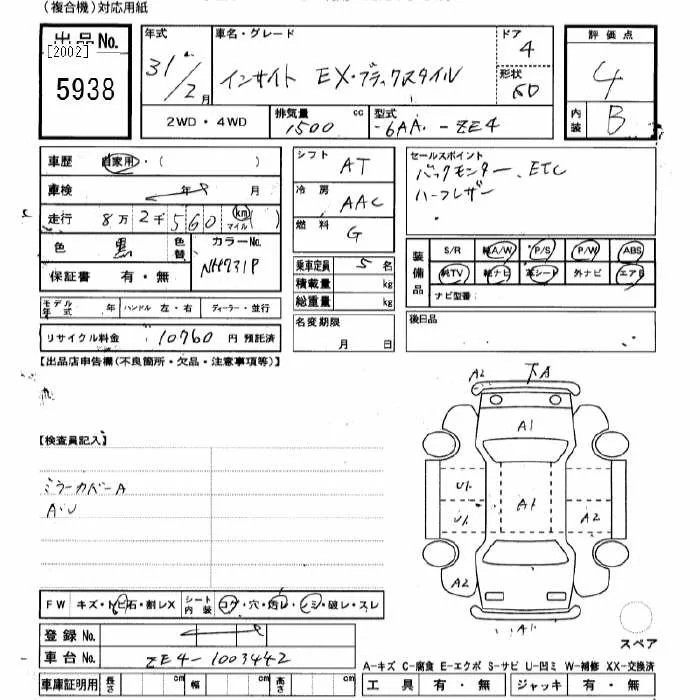 (複合機)対応用紙
出品No.
[2002]
5938
年式
31/2月
車名・グレード
インサイト EX・ブラックスタイル
ドア
4
形状
5D
評価点
4
内装
B
2WD・4WD
排気量
1500 cc
型式
-6AA- -ZE4
車歴 自家用・( )
車検 年 月
走行 8万2千560 km マイル( )
色 黒 色替
カラーNo.
NH731P
保証書 有・無
シフト
AT
冷房
AAC
燃料
G
セールスポイント
バックモンター、ETC
ハーフレザー
装備品
S/R 純A/W P/S P/W ABS
純TV 純ナビ 革シート 外ナビ エアB
ナビ型番:
乗車定員 5名
積載量 kg
総重量 kg
モデル年式 年 ハンドル 左・右 ディーラー・並行
リサイクル料金:10760円 預託済
名変期限
月 日
後日品
【出品店申告欄(不良箇所・欠品・注意事項等)】
A2
下A
A1
【検査員記入】
ミラーカバーA
A・U
U1
U1
A1
A2
A2
A1
FW キズ・トビ石・割レX シート内装 コゲ・穴・汚レ・シミ・破レ・スレ
登録No.
車台No. ZE4-1003442
スペア
A-キズ C-腐食 E-エクボ S-サビ U-凹ミ W-補修 XX-交換済
車庫証明用 長さ cm 幅 cm 高さ cm
工具 有・無 ジャッキ 有・無